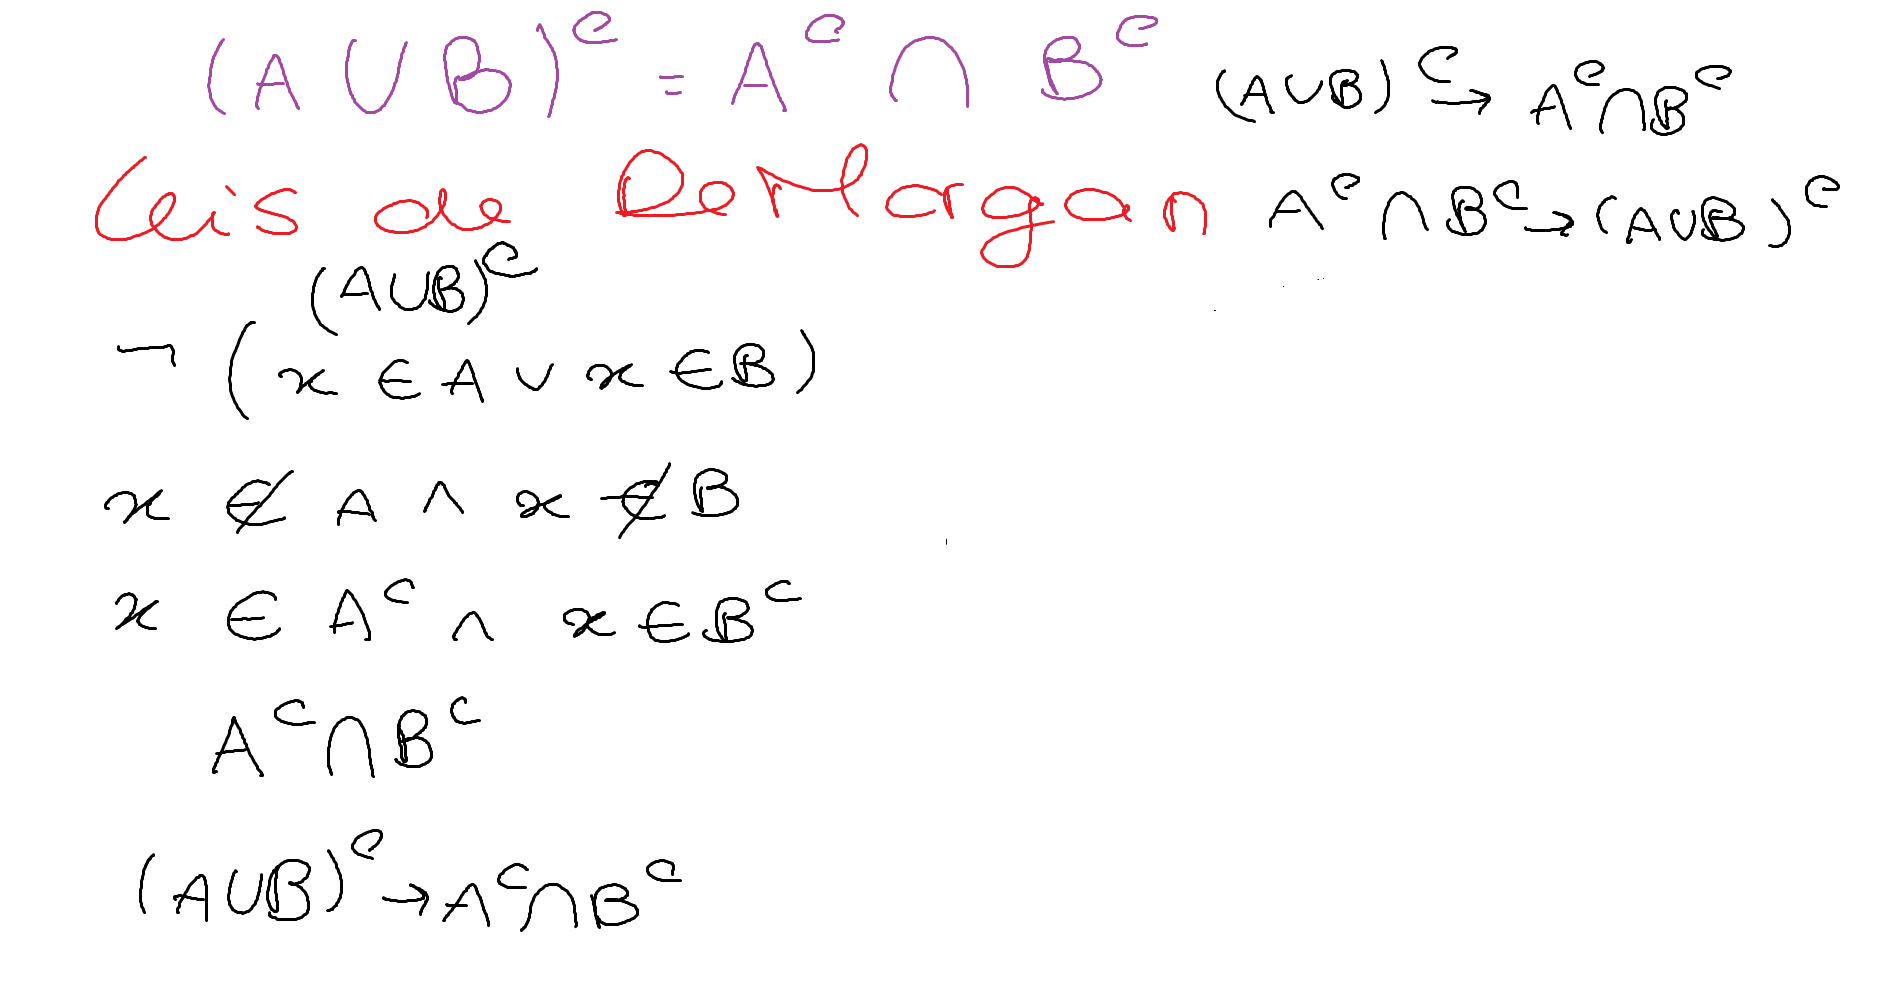 (A ∪ B)ᶜ = Aᶜ ∩ Bᶜ
(A∪B)ᶜ → Aᶜ∩Bᶜ
Leis de DeMorgan
Aᶜ ∩ Bᶜ → (A∪B)ᶜ
(A∪B)ᶜ
¬ (x ∈ A ∨ x ∈ B)
x ∉ A ∧ x ∉ B
x ∈ Aᶜ ∧ x ∈ Bᶜ
Aᶜ∩Bᶜ
(A∪B)ᶜ → Aᶜ∩Bᶜ